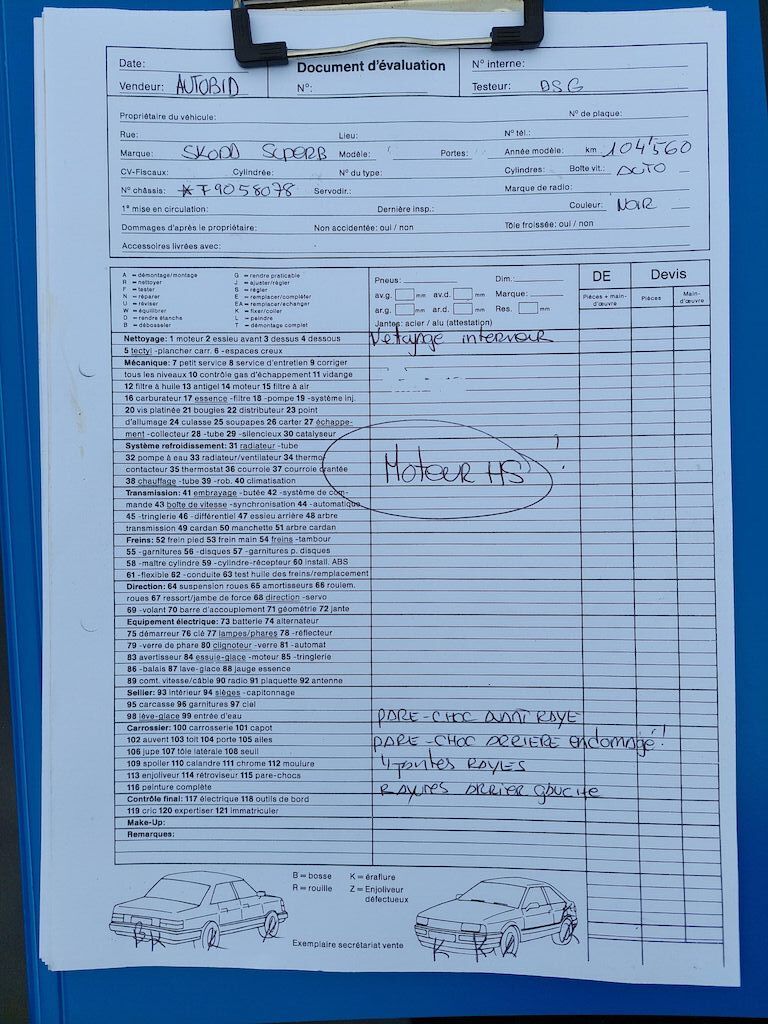 Date:
Document d'évaluation
N° interne:
Vendeur: AUTOBID
N°:
Testeur: DSG
Propriétaire du véhicule:
N° de plaque:
Rue:
Lieu:
N° tél.:
Marque: SKODA SUPERB Modèle: Portes: Année modèle: km 104'560
CV-Fiscaux: Cylindrée: N° du type: Cylindres: Boîte vit.: AUTO
N° châssis: *79058078 Servodir.: Marque de radio:
1ᵉ mise en circulation: Dernière insp.: Couleur: NOIR
Dommages d'après le propriétaire: Non accidentée: oui / non Tôle froissée: oui / non
Accessoires livrées avec:
A = démontage/montage G = rendre praticable
R = nettoyer J = ajuster/régler
F = tester S = régler
N = réparer E = remplacer/compléter
U = réviser EA = remplacer/echanger
W = équilibrer K = fixer/coller
D = rendre étanche L = peindre
B = débosseler T = démontage complet
Pneus: Dim.:
av.g. mm av.d. mm Marque:
ar.g. mm ar.d. mm Res. mm
Jantes: acier / alu (attestation)
DE Devis
Pièces + main-d'œuvre Pièces Main-d'œuvre
Nettoyage: 1 moteur 2 essieu avant 3 dessus 4 dessous
Netoyage interieur
5 tectyl -plancher carr. 6 -espaces creux
Mécanique: 7 petit service 8 service d'entretien 9 corriger
tous les niveaux 10 contrôle gaz d'échappement 11 vidange
12 filtre à huile 13 antigel 14 moteur 15 filtre à air
16 carburateur 17 essence -filtre 18 -pompe 19 -système inj.
20 vis platinée 21 bougies 22 distributeur 23 point
d'allumage 24 culasse 25 soupapes 26 carter 27 échappe-
ment -collecteur 28 -tube 29 -silencieux 30 catalyseur
Système refroidissement: 31 radiateur -tube
32 pompe à eau 33 radiateur/ventilateur 34 thermo-
contacteur 35 thermostat 36 courroie 37 courroie crantée
MOTEUR HS !!
38 chauffage -tube 39 -rob. 40 climatisation
Transmission: 41 embrayage -butée 42 -système de com-
mande 43 boîte de vitesse -synchronisation 44 -automatique
45 -tringlerie 46 -différentiel 47 essieu arrière 48 arbre
transmission 49 cardan 50 manchette 51 arbre cardan
Freins: 52 frein pied 53 frein main 54 freins -tambour
55 -garnitures 56 -disques 57 -garnitures p. disques
58 -maître cylindre 59 -cylindre-récepteur 60 install. ABS
61 -flexible 62 -conduite 63 test huile des freins/remplacement
Direction: 64 suspension roues 65 amortisseurs 66 roulem.
roues 67 ressort/jambe de force 68 direction -servo
69 -volant 70 barre d'accouplement 71 géométrie 72 jante
Equipement électrique: 73 batterie 74 alternateur
75 démarreur 76 clé 77 lampes/phares 78 -réflecteur
79 -verre de phare 80 clignoteur -verre 81 -automat
83 avertisseur 84 essuie-glace -moteur 85 -tringlerie
86 -balais 87 lave-glace 88 jauge essence
89 comt. vitesse/câble 90 radio 91 plaquette 92 antenne
Sellier: 93 intérieur 94 sièges -capitonnage
95 carcasse 96 garnitures 97 ciel
98 lève-glace 99 entrée d'eau
PARE-CHOC AVANT RAYE
Carrossier: 100 carrosserie 101 capot
102 auvent 103 toit 104 porte 105 ailes
PARE-CHOC ARRIERE endomagé!
106 jupe 107 tôle latérale 108 seuil
109 spoiler 110 calandre 111 chrome 112 moulure
4 jantes RAYLES
113 enjoliveur 114 rétroviseur 115 pare-chocs
116 peinture complète
RAYURES ARRIER gauche
Contrôle final: 117 électrique 118 outils de bord
119 cric 120 expertiser 121 immatriculer
Make-Up:
Remarques:
B = bosse K = éraflure
R = rouille Z = Enjoliveur défectueux
Exemplaire secrétariat vente